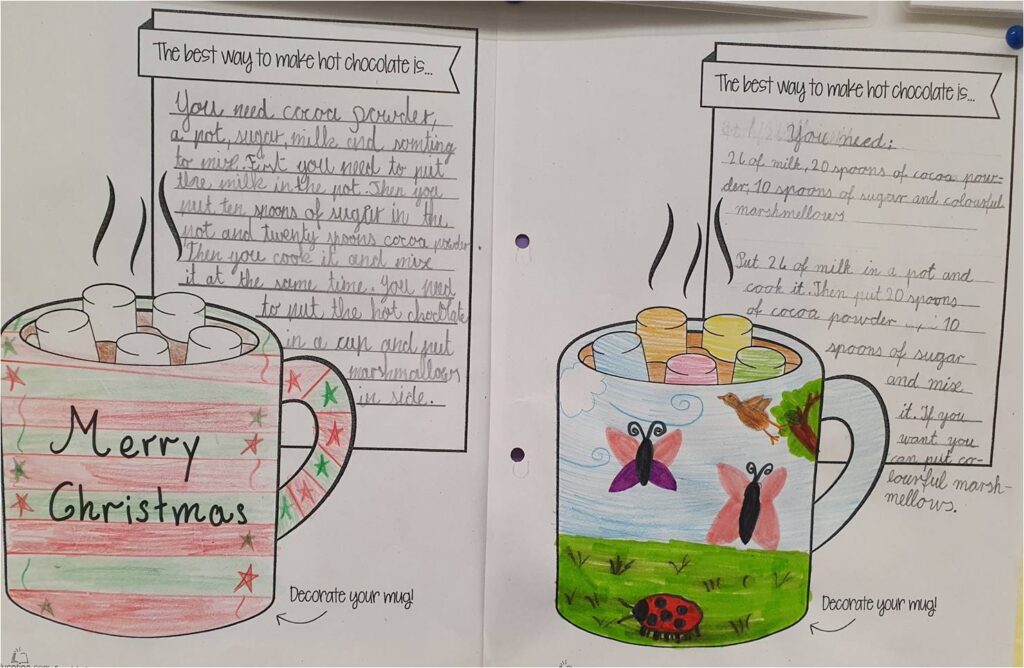 The best way to make hot chocolate is...
You need cocoa powder,
a pot, sugar, milk and somting
to mix. First you need to put
the milk in the pot. Then you
put ten spoons of sugar in the
pot and twenty spoons cocoa powder.
Then you cook it and mix
it at the same time. You need
to put the hot choclate
in a cup and put
marshmallows
in side.
Merry
Christmas
Decorate your mug!
The best way to make hot chocolate is...
You need:
2L of milk, 20 spoons of cocoa pow-
der, 10 spoons of sugar and colourful
marshmellows
Put 2L of milk in a pot and
cook it. Then put 20 spoons
of cocoa powder 10
spoons of sugar
and mix
it. If you
want you
can put co-
lourful marsh-
mellows.
Decorate your mug!